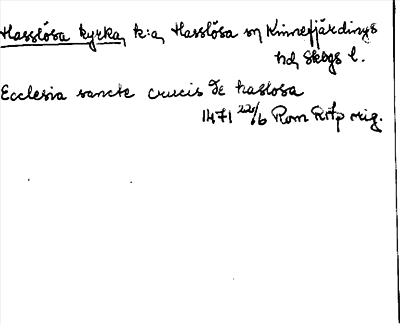 Hasslösa kyrka, k:a, Hasslösa sn Kinnefjärdings
hd, Skbgs l.
Ecclesia sancte crucis De haslosa
1471 22/6 Rom Perg orig.